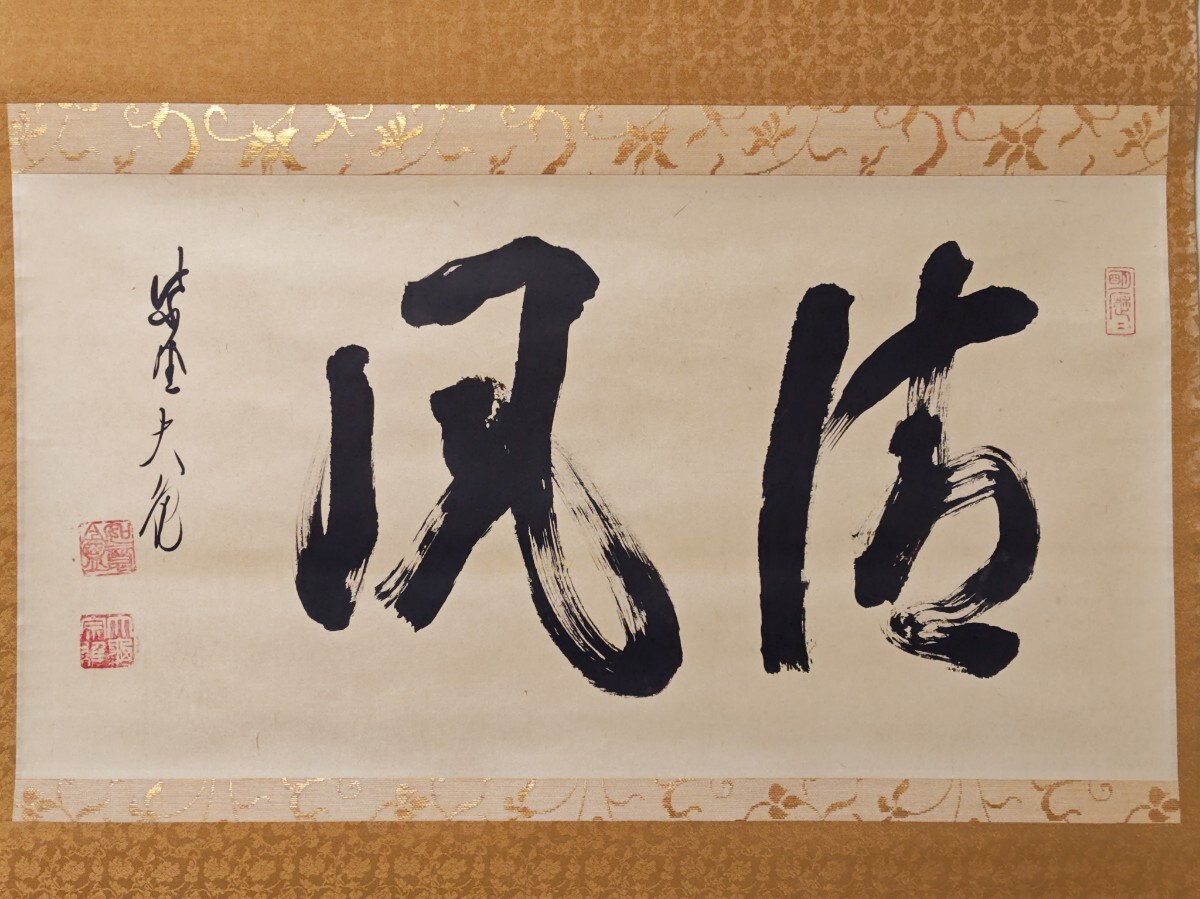 清風
紫野大亀